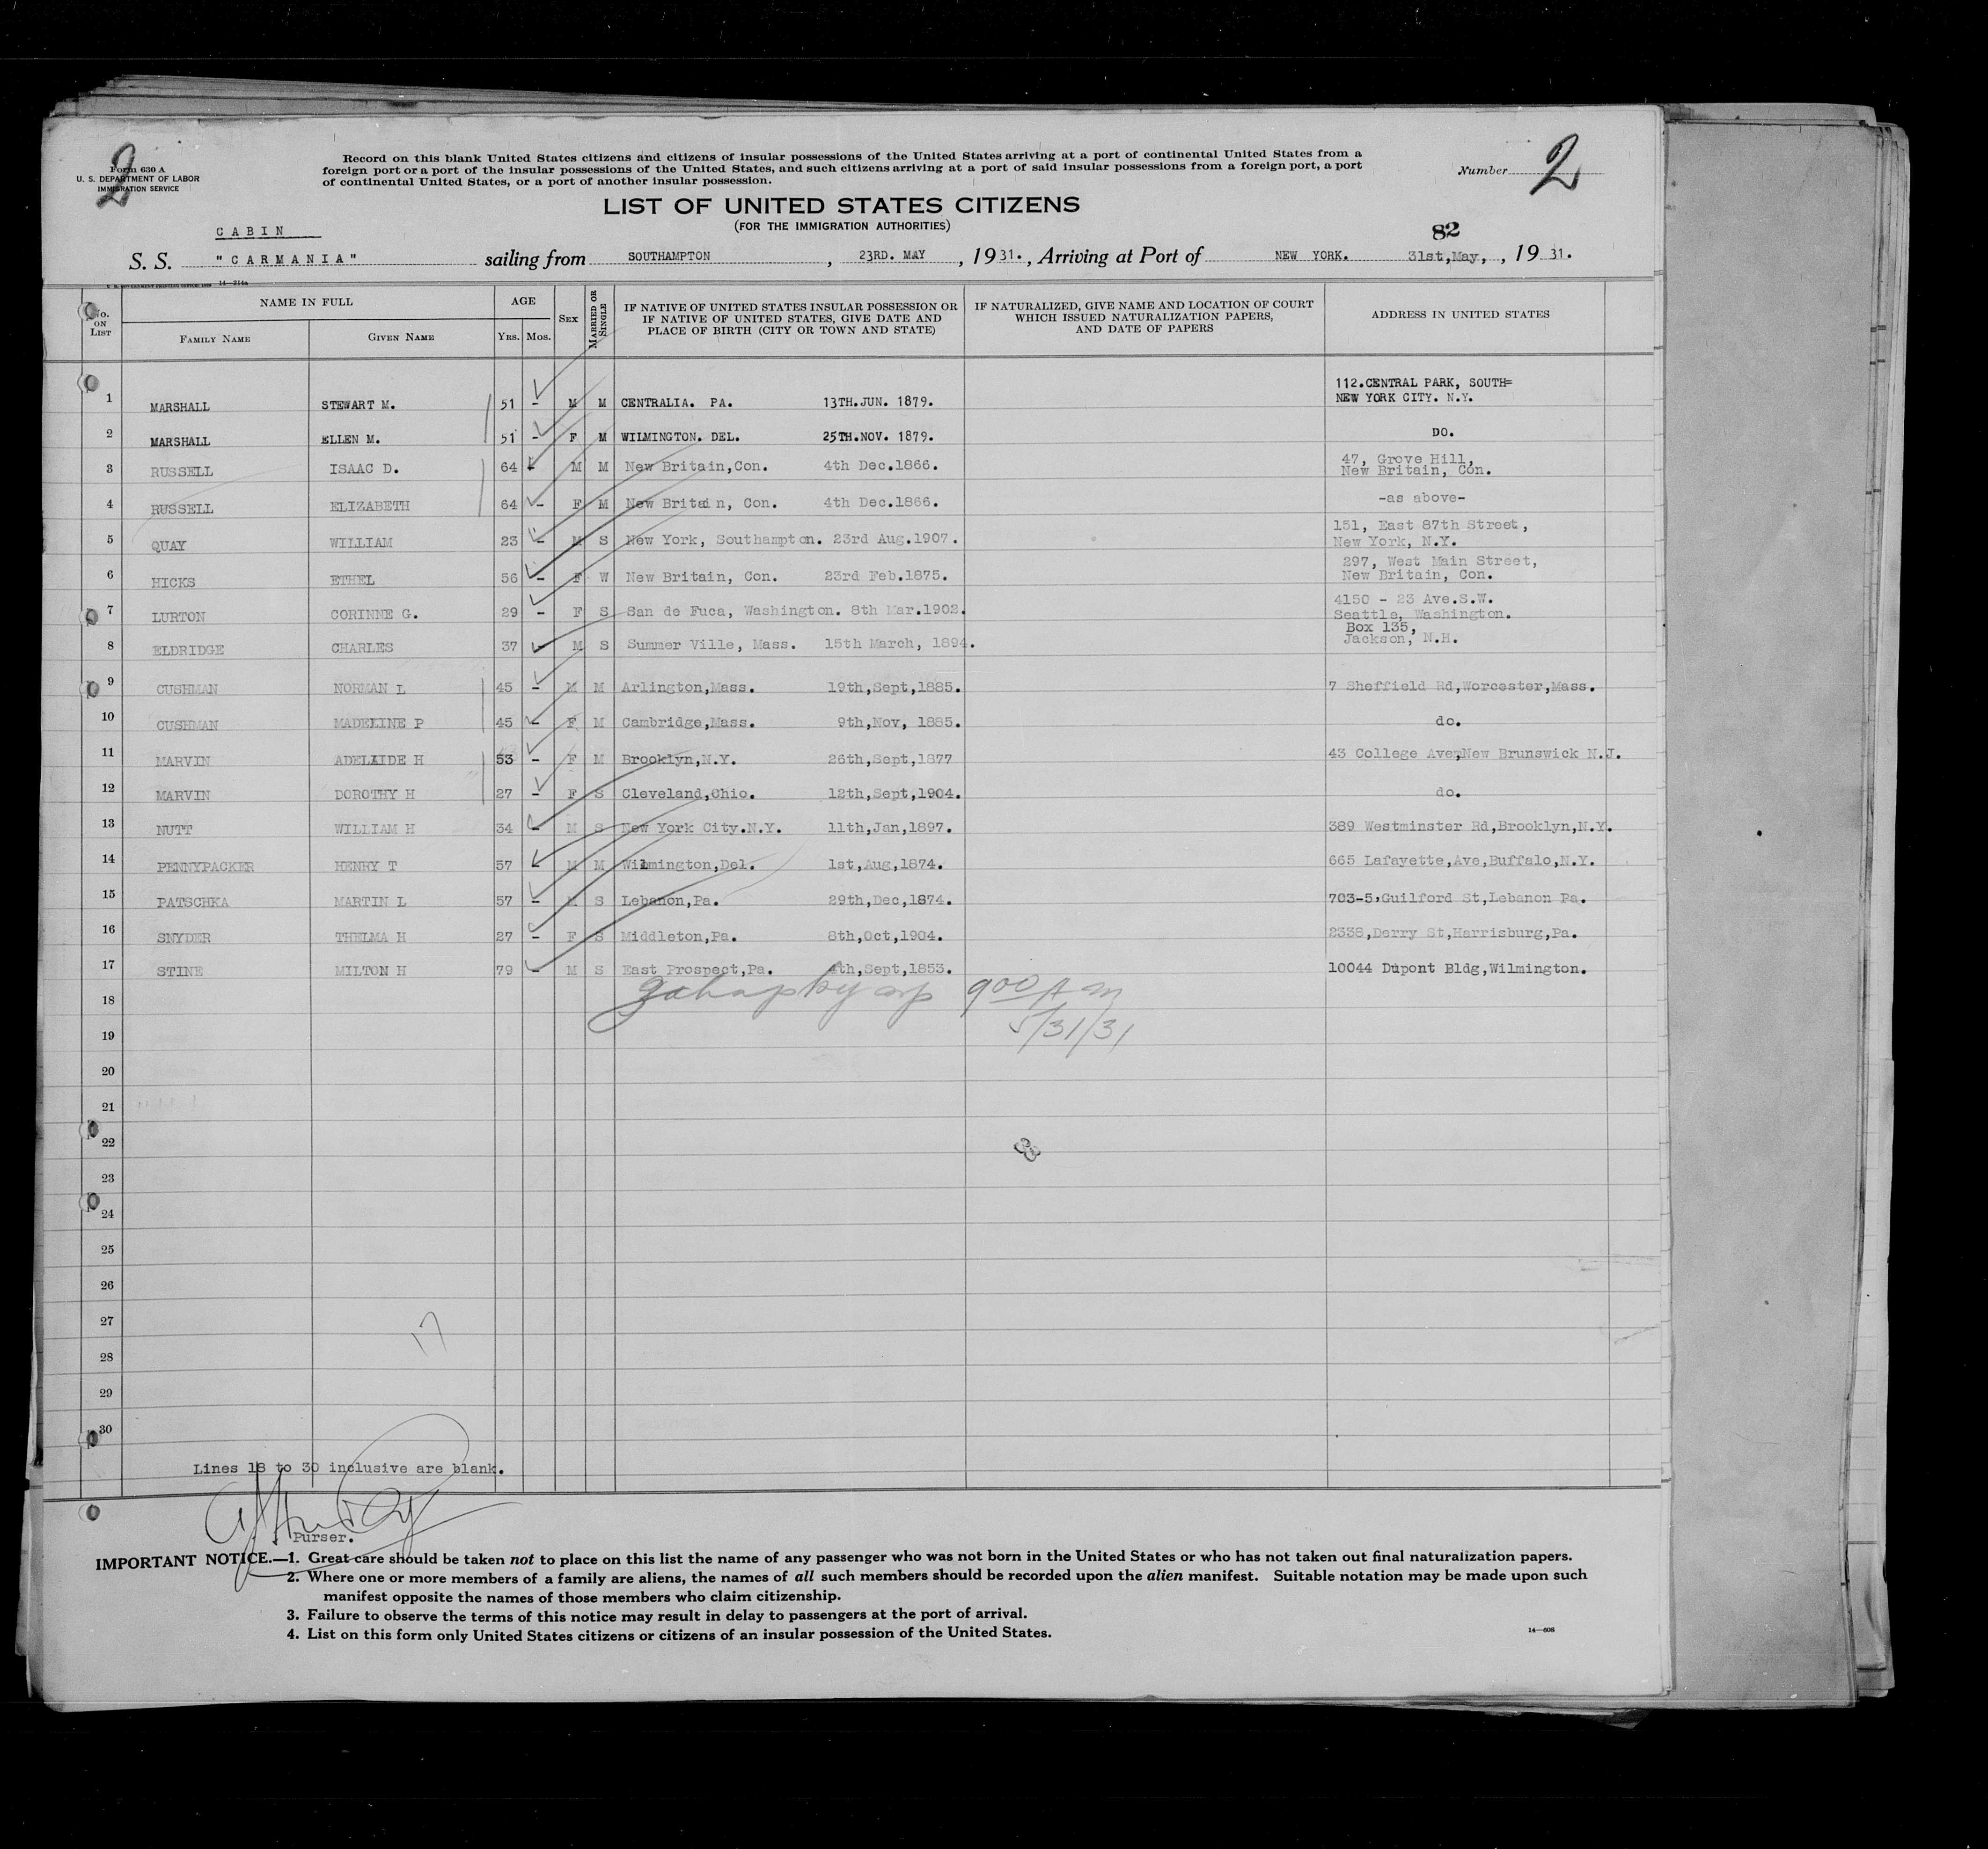 2
Form 630 A
U. S. DEPARTMENT OF LABOR
IMMIGRATION SERVICE
Record on this blank United States citizens and citizens of insular possessions of the United States arriving at a port of continental United States from a
foreign port or a port of the insular possessions of the United States, and such citizens arriving at a port of said insular possessions from a foreign port, a port
of continental United States, or a port of another insular possession.
Number 2
LIST OF UNITED STATES CITIZENS
(FOR THE IMMIGRATION AUTHORITIES)
CABIN
82
S. S. "CARMANIA" sailing from SOUTHAMPTON, 23RD. MAY, 1931., Arriving at Port of NEW YORK. 31st,May,, 1931.
14—214a
No. ON LIST
NAME IN FULL
FAMILY NAME GIVEN NAME
AGE
YRS. MOS.
SEX
MARRIED OR SINGLE
IF NATIVE OF UNITED STATES INSULAR POSSESSION OR
IF NATIVE OF UNITED STATES, GIVE DATE AND
PLACE OF BIRTH (CITY OR TOWN AND STATE)
IF NATURALIZED, GIVE NAME AND LOCATION OF COURT
WHICH ISSUED NATURALIZATION PAPERS,
AND DATE OF PAPERS
ADDRESS IN UNITED STATES
1 MARSHALL STEWART M. 51 - M M CENTRALIA. PA. 13TH.JUN. 1879. 112.CENTRAL PARK, SOUTH=
NEW YORK CITY. N.Y.
2 MARSHALL ELLEN M. 51 - F M WILMINGTON. DEL. 25TH.NOV. 1879. DO.
3 RUSSELL ISAAC D. 64 - M M New Britain,Con. 4th Dec.1866. 47, Grove Hill,
New Britain, Con.
4 RUSSELL ELIZABETH 64 - F M New Britain, Con. 4th Dec.1866. -as above-
5 QUAY WILLIAM 23 - M S New York, Southampton. 23rd Aug.1907. 151, East 87th Street,
New York, N.Y.
6 HICKS ETHEL 56 - F W New Britain, Con. 23rd Feb.1875. 297, West Main Street,
New Britain, Con.
7 LURTON CORINNE G. 29 - F S San de Fuca, Washington. 8th Mar.1902. 4150 - 23 Ave.S.W.
Seattle, Washington.
8 ELDRIDGE CHARLES 37 - M S Summer Ville, Mass. 15th March, 1894. Box 135,
Jackson, N.H.
9 CUSHMAN NORMAN L 45 - M M Arlington,Mass. 19th,Sept,1885. 7 Sheffield Rd,Worcester,Mass.
10 CUSHMAN MADELINE P 45 - F M Cambridge,Mass. 9th,Nov, 1885. do.
11 MARVIN ADELAIDE H 53 - F M Brooklyn,N.Y. 26th,Sept,1877 43 College Ave,New Brunswick N.J.
12 MARVIN DOROTHY H 27 - F S Cleveland,Ohio. 12th,Sept,1904. do.
13 NUTT WILLIAM H 34 - M S New York City.N.Y. 11th,Jan,1897. 389 Westminster Rd,Brooklyn,N.Y.
14 PENNYPACKER HENRY T 57 - M M Wilmington,Del. 1st,Aug,1874. 665 Lafayette,Ave,Buffalo,N.Y.
15 PATSCHKA MARTIN L 57 - M S Lebanon,Pa. 29th,Dec,1874. 703-5,Guilford St,Lebanon Pa.
16 SNYDER THELMA H 27 - F S Middleton,Pa. 8th,Oct,1904. 2338,Derry St,Harrisburg,Pa.
17 STINE MILTON H 79 - M S East Prospect,Pa. 4th,Sept,1853. 10044 Dupont Bldg,Wilmington.
18 900 A m
19 5/31/31
20
21
22
23
24
25
26
27
17
28
29
30
Lines 18 to 30 inclusive are blank.
Purser.
IMPORTANT NOTICE.—1. Great care should be taken not to place on this list the name of any passenger who was not born in the United States or who has not taken out final naturalization papers.
2. Where one or more members of a family are aliens, the names of all such members should be recorded upon the alien manifest. Suitable notation may be made upon such
manifest opposite the names of those members who claim citizenship.
3. Failure to observe the terms of this notice may result in delay to passengers at the port of arrival.
4. List on this form only United States citizens or citizens of an insular possession of the United States.
14—608